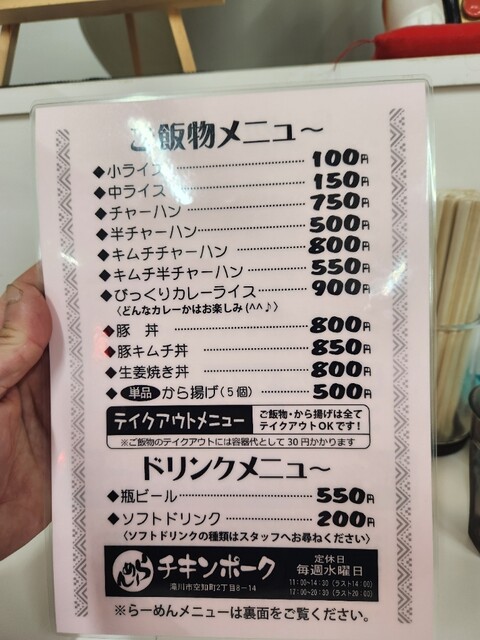 ご飯物メニュー～
◆小ライス 100円
◆中ライス 150円
◆チャーハン 750円
◆半チャーハン 500円
◆キムチチャーハン 800円
◆キムチ半チャーハン 550円
◆びっくりカレーライス 900円
〈どんなカレーかはお楽しみ(^^♪〉
◆豚 丼 800円
◆豚キムチ丼 850円
◆生姜焼き丼 800円
◆単品 から揚げ(5個) 500円
テイクアウトメニュー ご飯物・から揚げは全て
テイクアウトOKです!
※ご飯物のテイクアウトには容器代として30円かかります
ドリンクメニュー～
◆瓶ビール 550円
◆ソフトドリンク 200円
〈ソフトドリンクの種類はスタッフへお尋ねください〉
らーめん チキンポーク
滝川市空知町2丁目8－14
定休日
毎週水曜日
11:00~14:30(ラスト14:00)
17:00~20:30(ラスト20:00)
※らーめんメニューは裏面をご覧ください。